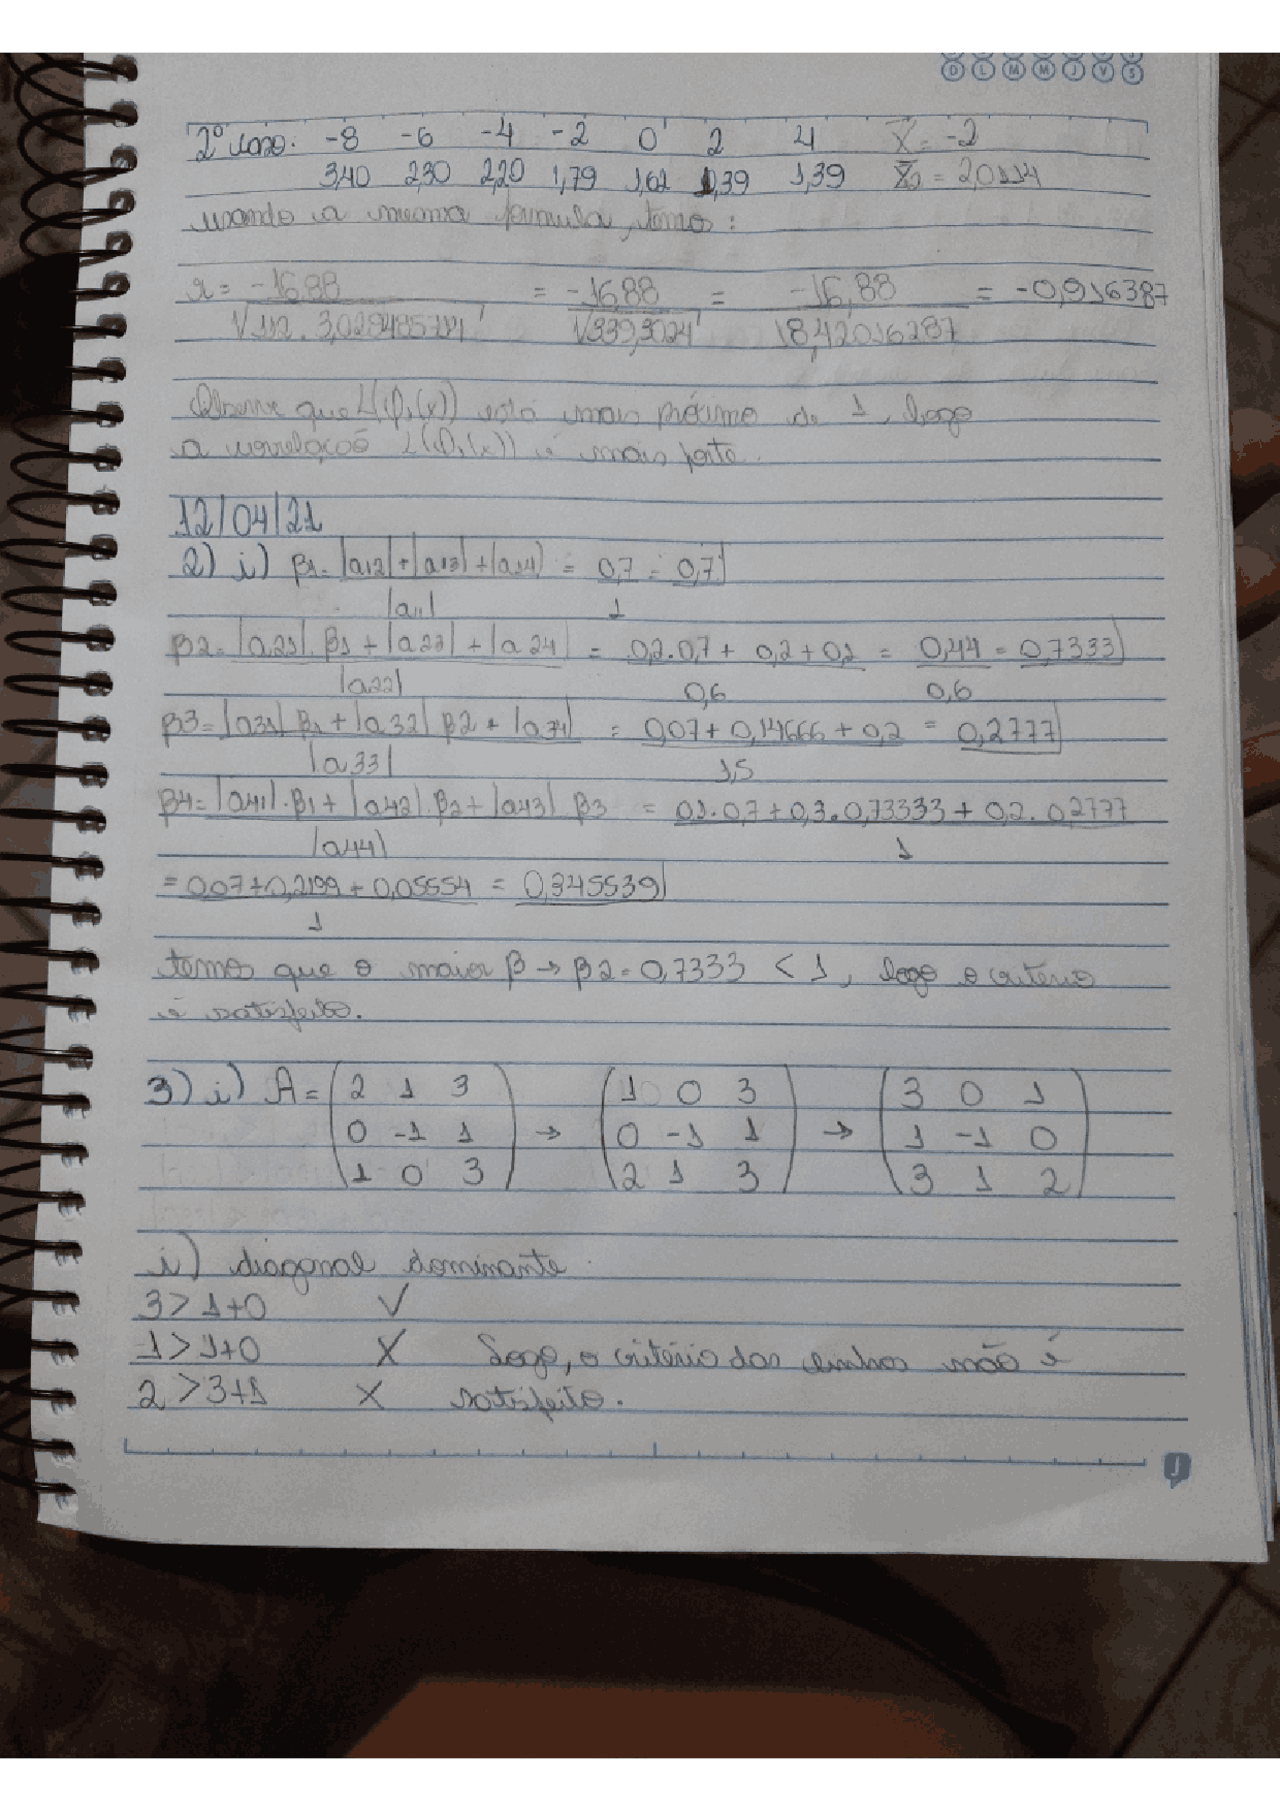 D L M M J V S
2º caso: -8 -6 -4 -2 0 2 4 X̄ = -2
3,40 2,30 2,20 1,79 1,62 1,39 1,39 = 2,0114
usando a mesma formula, temos:
r = -16,88 = -16,88 = -16,88 = -0,916387
√112 . 3,029485714 √339,3024 18,42016287
Observe que L(φ,(x)) está mais próximo de 1, logo
a correlação L(φ,(x)) é mais forte.
12/04/21
2) i) β1 = |a12| + |a13| + |a14| = 0,7 = 0,7
|a11| 1
β2 = |a21| . β1 + |a23| + |a24| = 0,2.0,7 + 0,2 + 0,1 = 0,44 = 0,7333
|a22| 0,6 0,6
β3 = |a31| β1 + |a32| β2 + |a34| = 0,07 + 0,14666 + 0,2 = 0,2777
|a33| 1,5
β4 = |a41| . β1 + |a42| . β2 + |a43| β3 = 0,1 . 0,7 + 0,3 . 0,73333 + 0,2 . 0,2777
|a44| 1
= 0,07 + 0,2199 + 0,05554 = 0,345539
1
temos que o maior β → β2 = 0,7333 < 1, logo o critério
é satisfeito.
3) i) A = (2 1 3) (1 0 3) (3 0 1)
0 -1 1 → 0 -1 1 → 1 -1 0
1 0 3 2 1 3 3 1 2
i) diagonal dominante
3 > 1+0 ✓
-1 > 1+0 X Logo, o critério das linhas não é
2 > 3+1 X satisfeito.
J